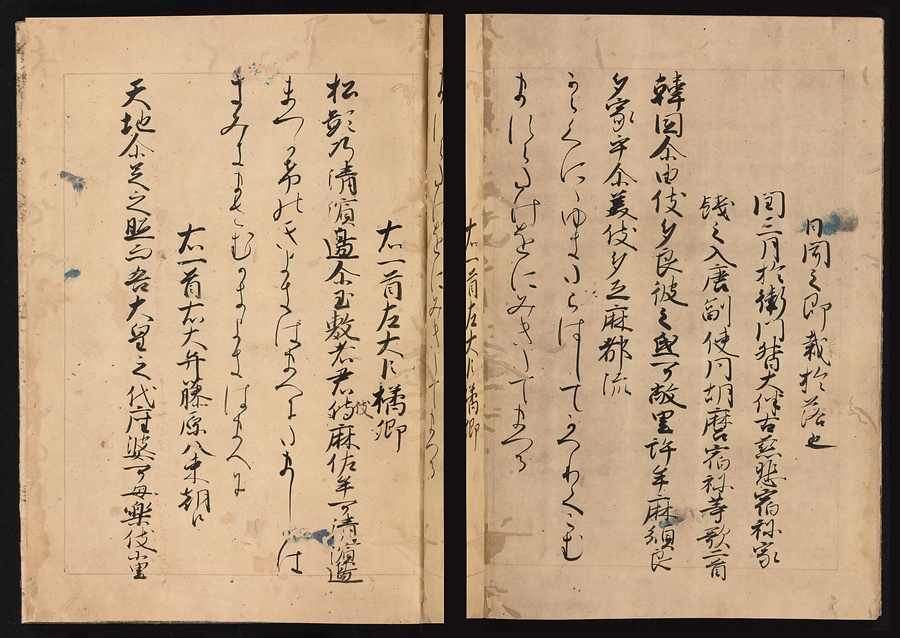 日聞之即載於茲也
閏三月於衛門督大伴古慈悲宿祢家
餞之入唐副使同胡麿宿祢等歌二首
韓国尓由伎多良波之弖可敝里許牟麻須良
多家乎尓美伎多弖麻都流
からくにゝゆきたらはしてかへりこむ
ますらたけをにみきたてまつる
右一首左大臣橘卿
松影乃清濱邊尓玉敷者君伎麻佐牟可清濱邊
まつかけのきよきはまへにたましかは
きみきまさむかきよきはまへに
右一首右大弁藤原八束朝臣
天地尓足之照而吾大皇之伎座婆可母樂伎小里